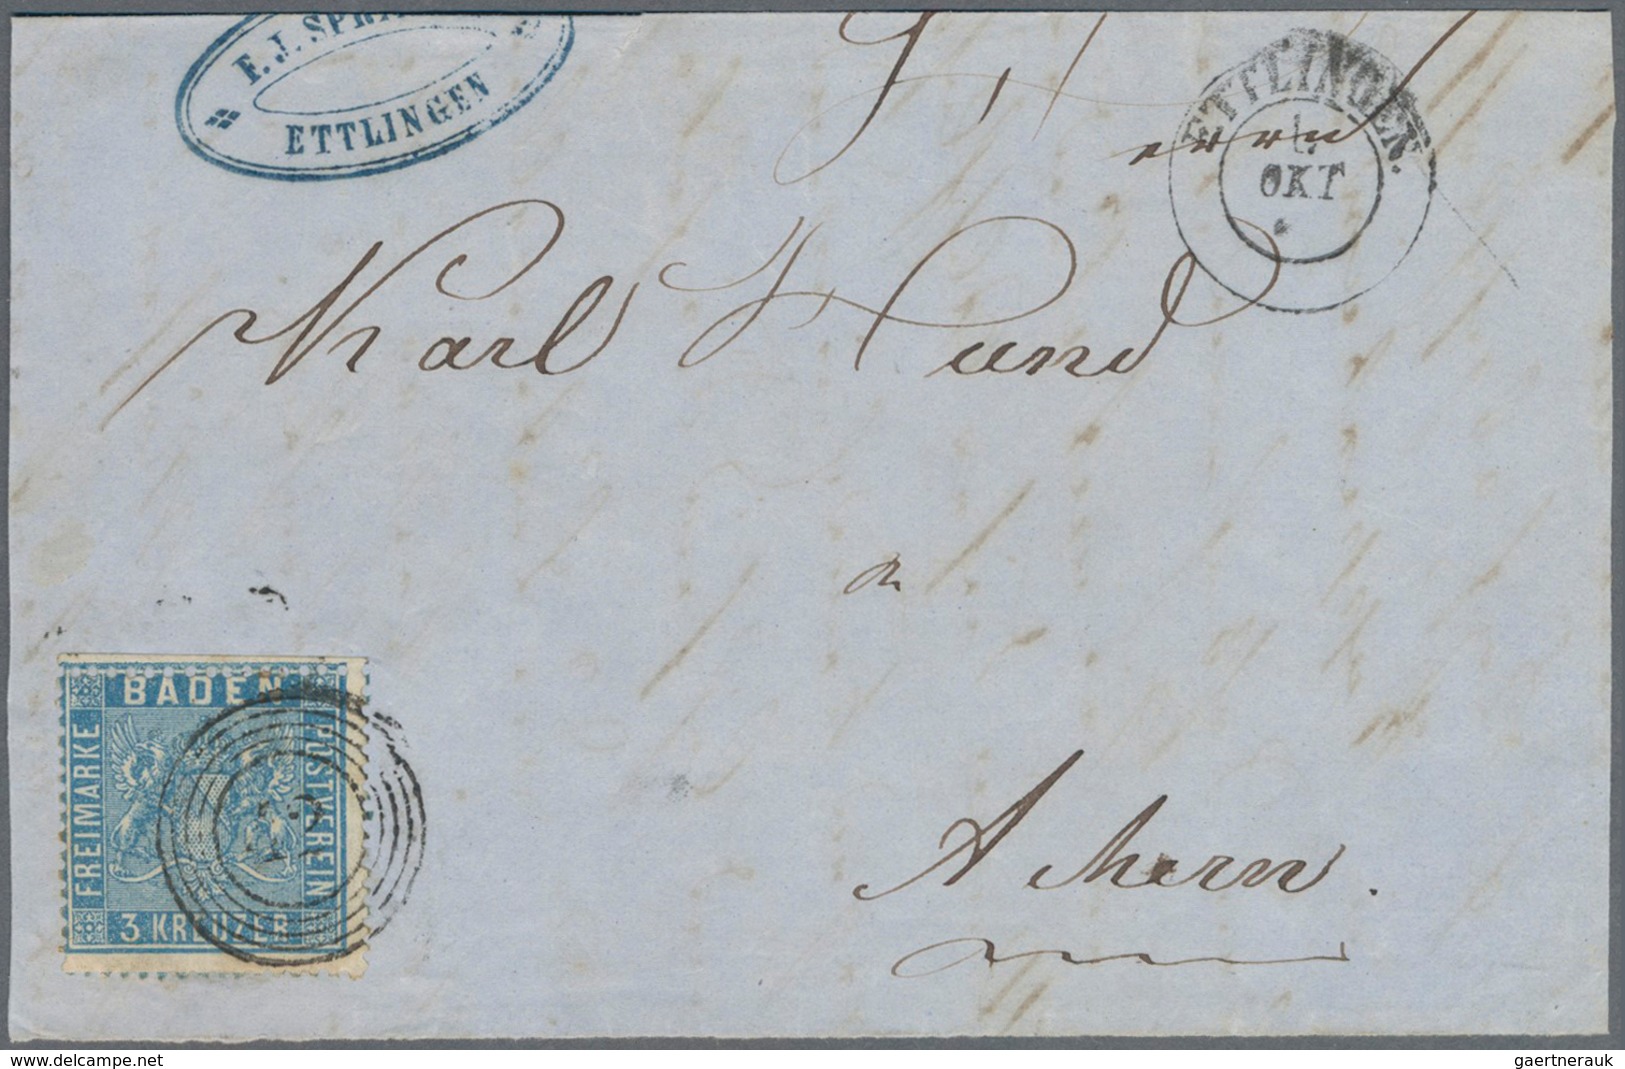 F. J. SPR
ETTLINGEN
ETTLINGEN.
OKT
Herrn
Karl Hund
in
Achern.
BADEN
FREIMARKE
POSTVEREIN
3 KREUZER
www.delcampe.net
gaertnerauk